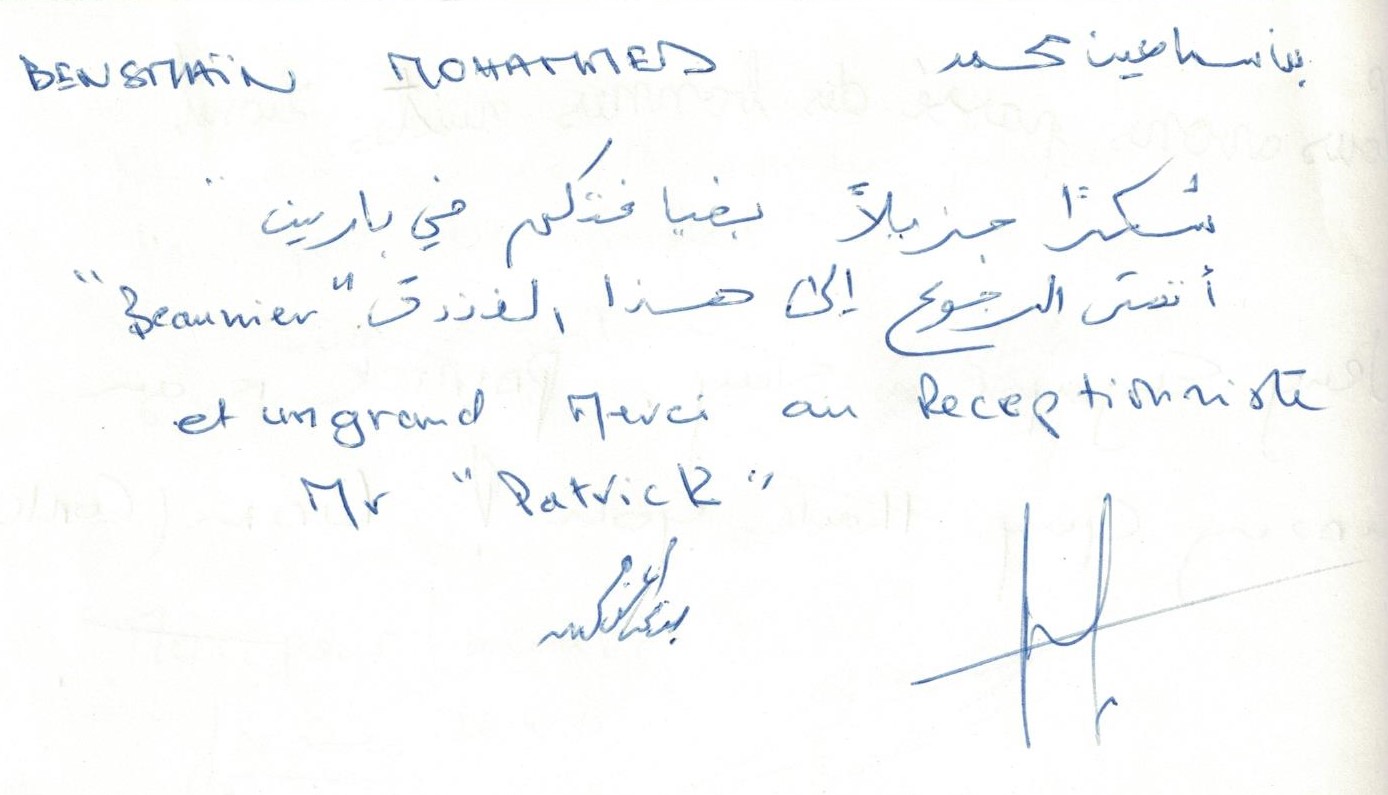 BENSMAÏN MOHAMMED بن سماعين محمد
شكرًا جزيلاً بضيافتكم في باريس
أتمنى الرجوع إلى هذا الفندق "Beaunier"
et un grand Merci au Receptionniste
Mr "Patrick"